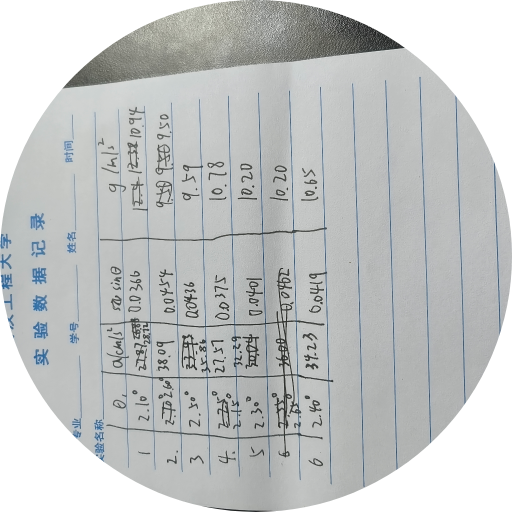 工程大学
实验数据记录
专业 学号 姓名 时间
实验名称
θ₁ a/cm/s² sinθ g/m/s²
1 2.10° 0.0366 10.94
2. 2.60° 38.09 0.0454 9.50
3 2.50° 35.86 0.0436 9.59
4. 2.15° 27.57 0.0375 10.78
5 2.30° 32.29 0.0401 10.20
6 2.65° 0.0402 10.20
6 2.40° 34.23 0.0419 10.65